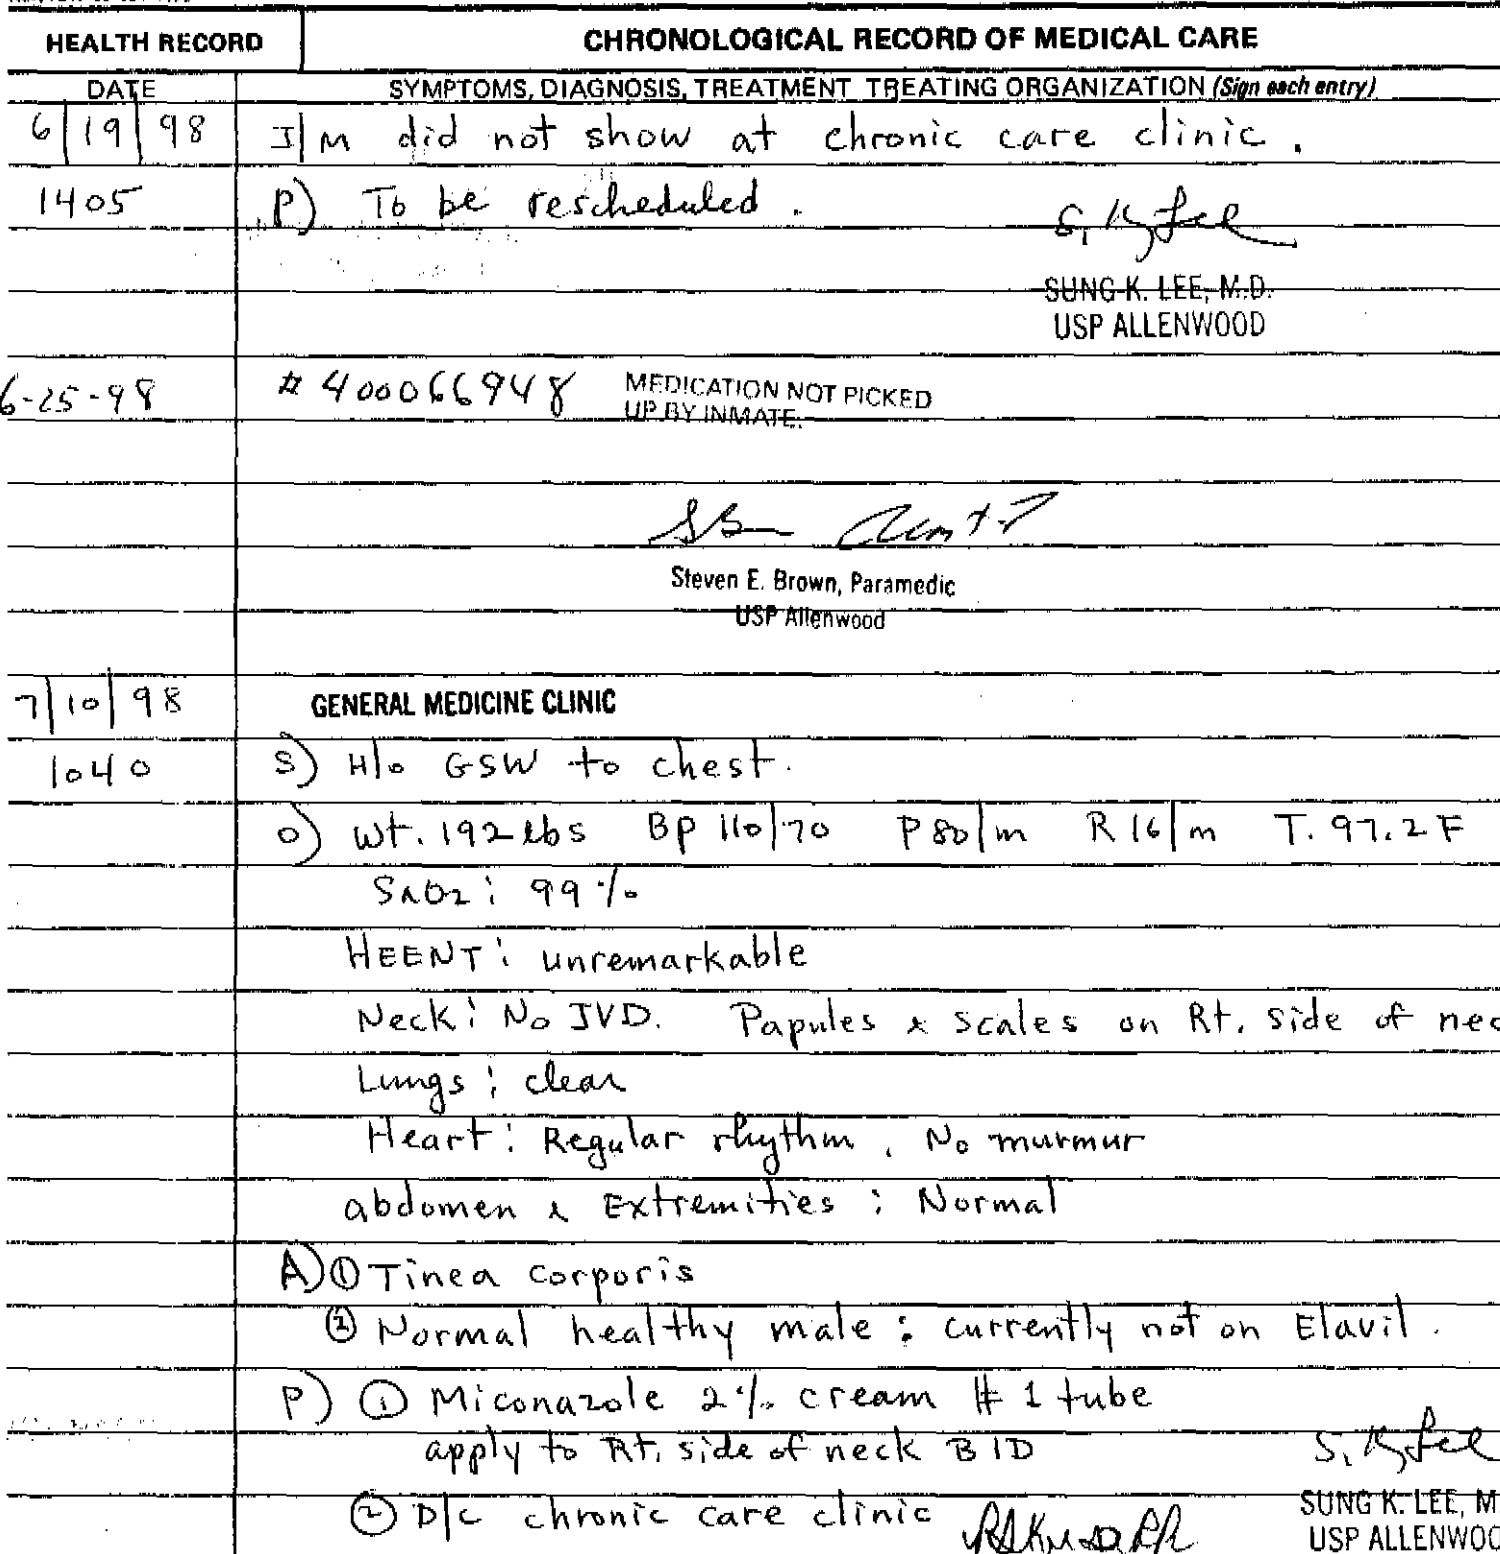 HEALTH RECORD CHRONOLOGICAL RECORD OF MEDICAL CARE
DATE SYMPTOMS, DIAGNOSIS, TREATMENT TREATING ORGANIZATION (Sign each entry)
6/19/98 I/M did not show at chronic care clinic.
1405 P) To be rescheduled.
S. K. Lee
SUNG K. LEE, M.D.
USP ALLENWOOD
6-25-98 # 400066948 MEDICATION NOT PICKED
UP BY INMATE.
Steven E. Brown, Paramedic
USP Allenwood
7/10/98 GENERAL MEDICINE CLINIC
1040 S) H/o GSW to chest.
O) Wt. 192 lbs BP 110/70 P 80/m R 16/m T. 97.2 F
SaO2: 99%
HEENT: unremarkable
Neck: No JVD. Papules & scales on Rt. side of nec
Lungs: clear
Heart: Regular rhythm. No murmur
abdomen & Extremities: Normal
A) ① Tinea corporis
② Normal healthy male: currently not on Elavil.
P) ① Miconazole 2% cream # 1 tube
apply to Rt. side of neck BID
S. K. Lee
② D/c chronic care clinic
SUNG K. LEE, M
USP ALLENWOO